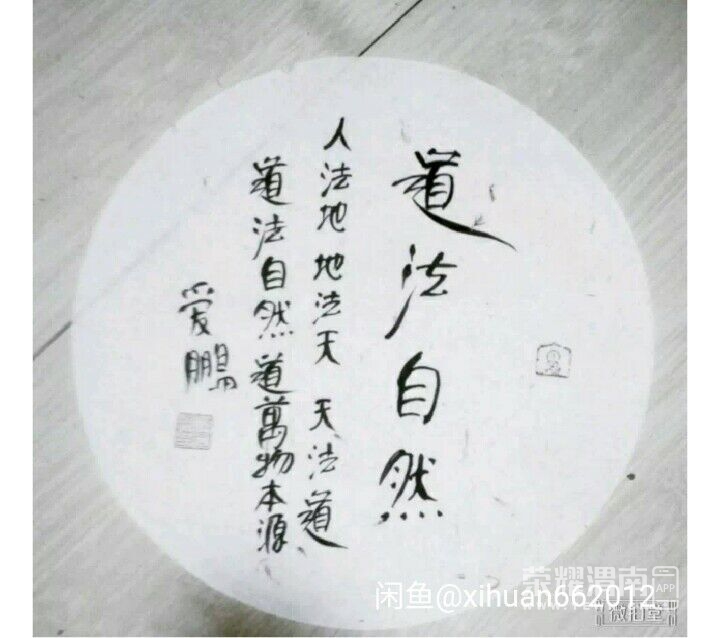 道法自然
人法地地法天天法道
道法自然道萬物本源
爱鵬
荣耀渭南
APP
闲鱼@xihuan662012